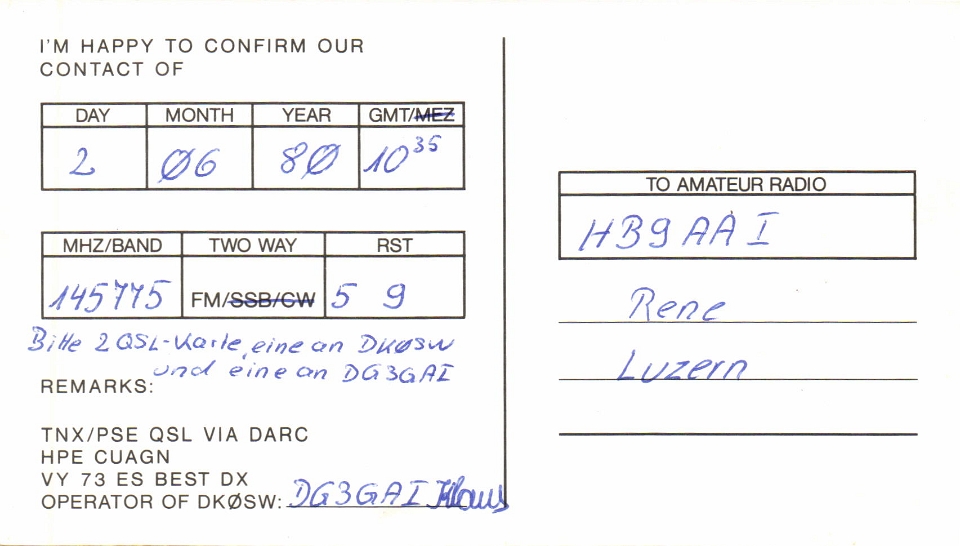 I'M HAPPY TO CONFIRM OUR
CONTACT OF
DAY MONTH YEAR GMT/MEZ
2 Ø6 8Ø 10 35
MHZ/BAND TWO WAY RST
145775 FM/SSB/CW 5 9
Bitte 2 QSL-Karte, eine an DKØSW
und eine an DG3GAI
REMARKS:
TNX/PSE QSL VIA DARC
HPE CUAGN
VY 73 ES BEST DX
OPERATOR OF DKØSW: DG3GAI Klaus
TO AMATEUR RADIO
HB9AAI
Rene
Luzern